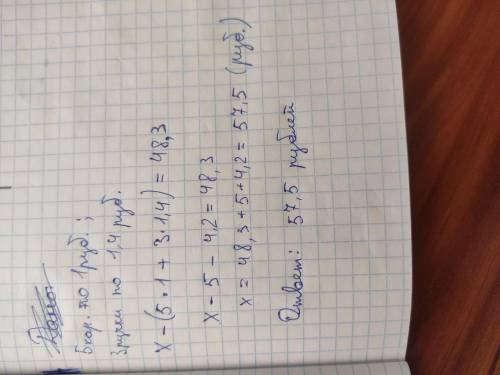 5 кар. по 1 руб.;
3 ручки по 1,4 руб.
x - (5·1 + 3·1,4) = 48,3
x - 5 - 4,2 = 48,3
x = 48,3 + 5 + 4,2 = 57,5 (руб.)
Ответ: 57,5 рублей